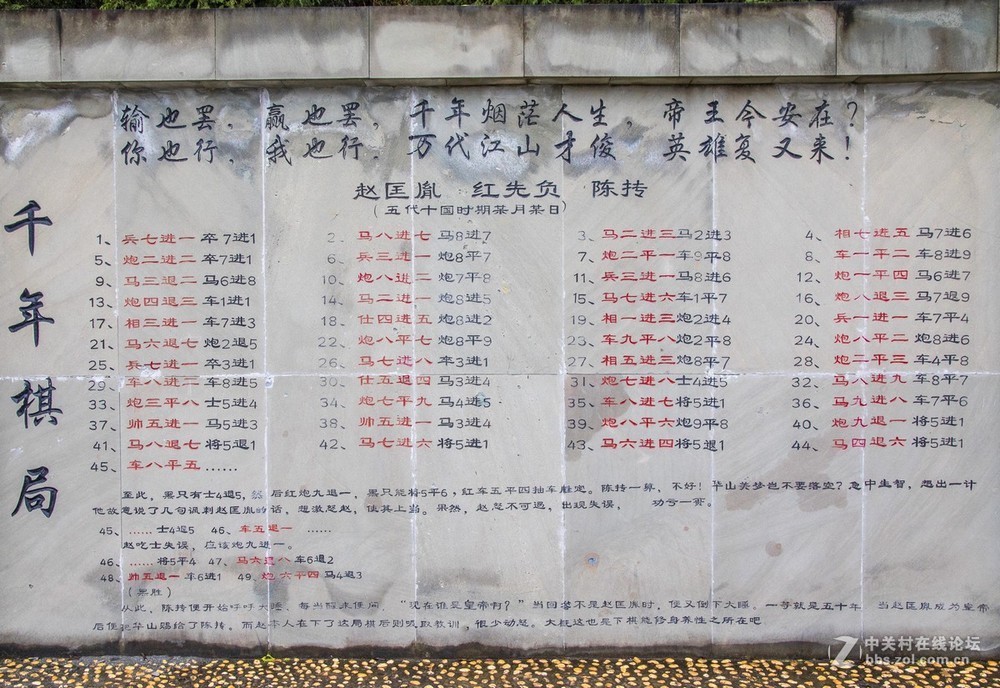 输也罢，赢也罢，千年烟茫人生，帝王今安在？
你也行，我也行，万代江山才俊 英雄复又来！
千年棋局
赵匡胤 红先负 陈抟
（五代十国时期某月某日）
1、兵七进一 卒7进1 2、马八进七 马8进7 3、马二进三 马2进3 4、相七进五 马7进6
5、炮二进二 卒7进1 6、兵三进一 炮8平7 7、炮二平一 车9平8 8、车一平二 车8进9
9、马三退二 马6进8 10、炮八进二 炮7平8 11、兵三进一 马8进6 12、炮一平四 马6进7
13、炮四退三 车1进1 14、马二进一 炮8进5 15、马七进六 车1平7 16、炮八退三 马7退9
17、相三进一 车7进3 18、仕四进五 炮8进2 19、相一进三 炮2进4 20、兵一进一 车7平4
21、马六退七 炮2退5 22、炮八平七 炮8平9 23、车九平八 炮2平8 24、炮八平二 炮8进6
25、兵七进一 卒3进1 26、马七进八 卒3进1 27、相五进三 炮8平7 28、炮二平三 车4平8
29、车八进二 车8进5 30、仕五退四 马3进4 31、炮七进八 士4进5 32、马八进九 车8平7
33、炮三平八 士5进4 34、炮七平九 马4进5 35、车八进七 将5进1 36、马九进八 车7平6
37、帅五进一 马5进3 38、帅五进一 马3进4 39、炮八平六 炮9平8 40、炮九退一 将5进1
41、马八退七 将5退1 42、马七进六 将5进1 43、马六进四 将5退1 44、马四退六 将5进1
45、车八平五……
至此，黑只有士4退5，然后红炮九退一，黑只能将5平6，红车五平四抽车胜定。陈抟一算，不好！华山美梦岂不要落空？急中生智，想出一计
他故意说了几句讽刺赵匡胤的话，想激怒赵，使其上当。果然，赵怒不可遏，出现失误， 功亏一篑。
45、……士4退5 46、车五退一 ……
赵吃士失误，应该炮九进一。
46、……将5平4 47、马六进八 车6退2
48、帅五退一 车6进1 49、炮六平四 马4退3
（黑胜）
从此，陈抟便开始呼呼大睡，每当醒来便问，“现在谁是皇帝啊？”当回答不是赵匡胤时，便又倒下大睡，一等就是五十年 当赵匡胤成为皇帝
后便把华山赐给了陈抟。而赵本人在下了这局棋后则吸取教训，很少动怒。大概这也是下棋能修身养性之所在吧
中关村在线论坛
bbs.zol.com.cn